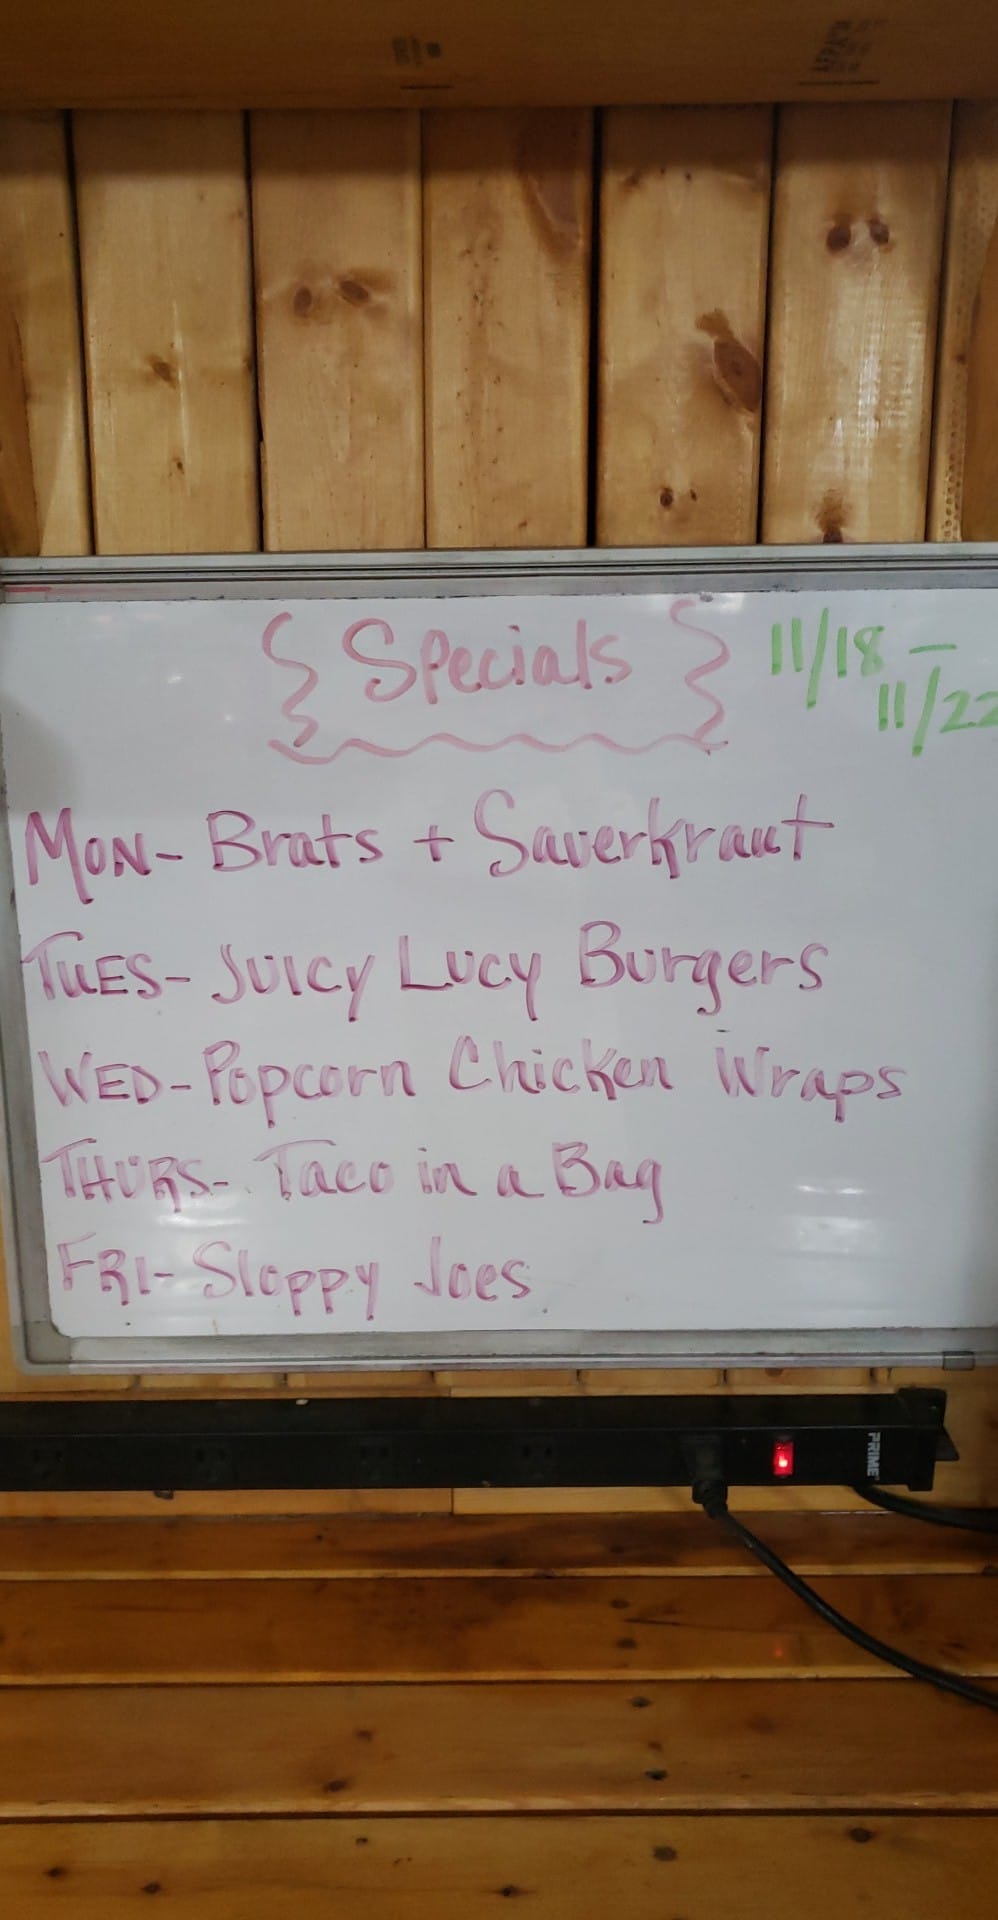 Specials
11/18 -
11/22
MON- Brats + Saverkraut
TUES- JUICY LUCY Burgers
WED- Popcorn Chicken Wraps
THURS- Taco in a Bag
FRI- Sloppy Joes
PRIME